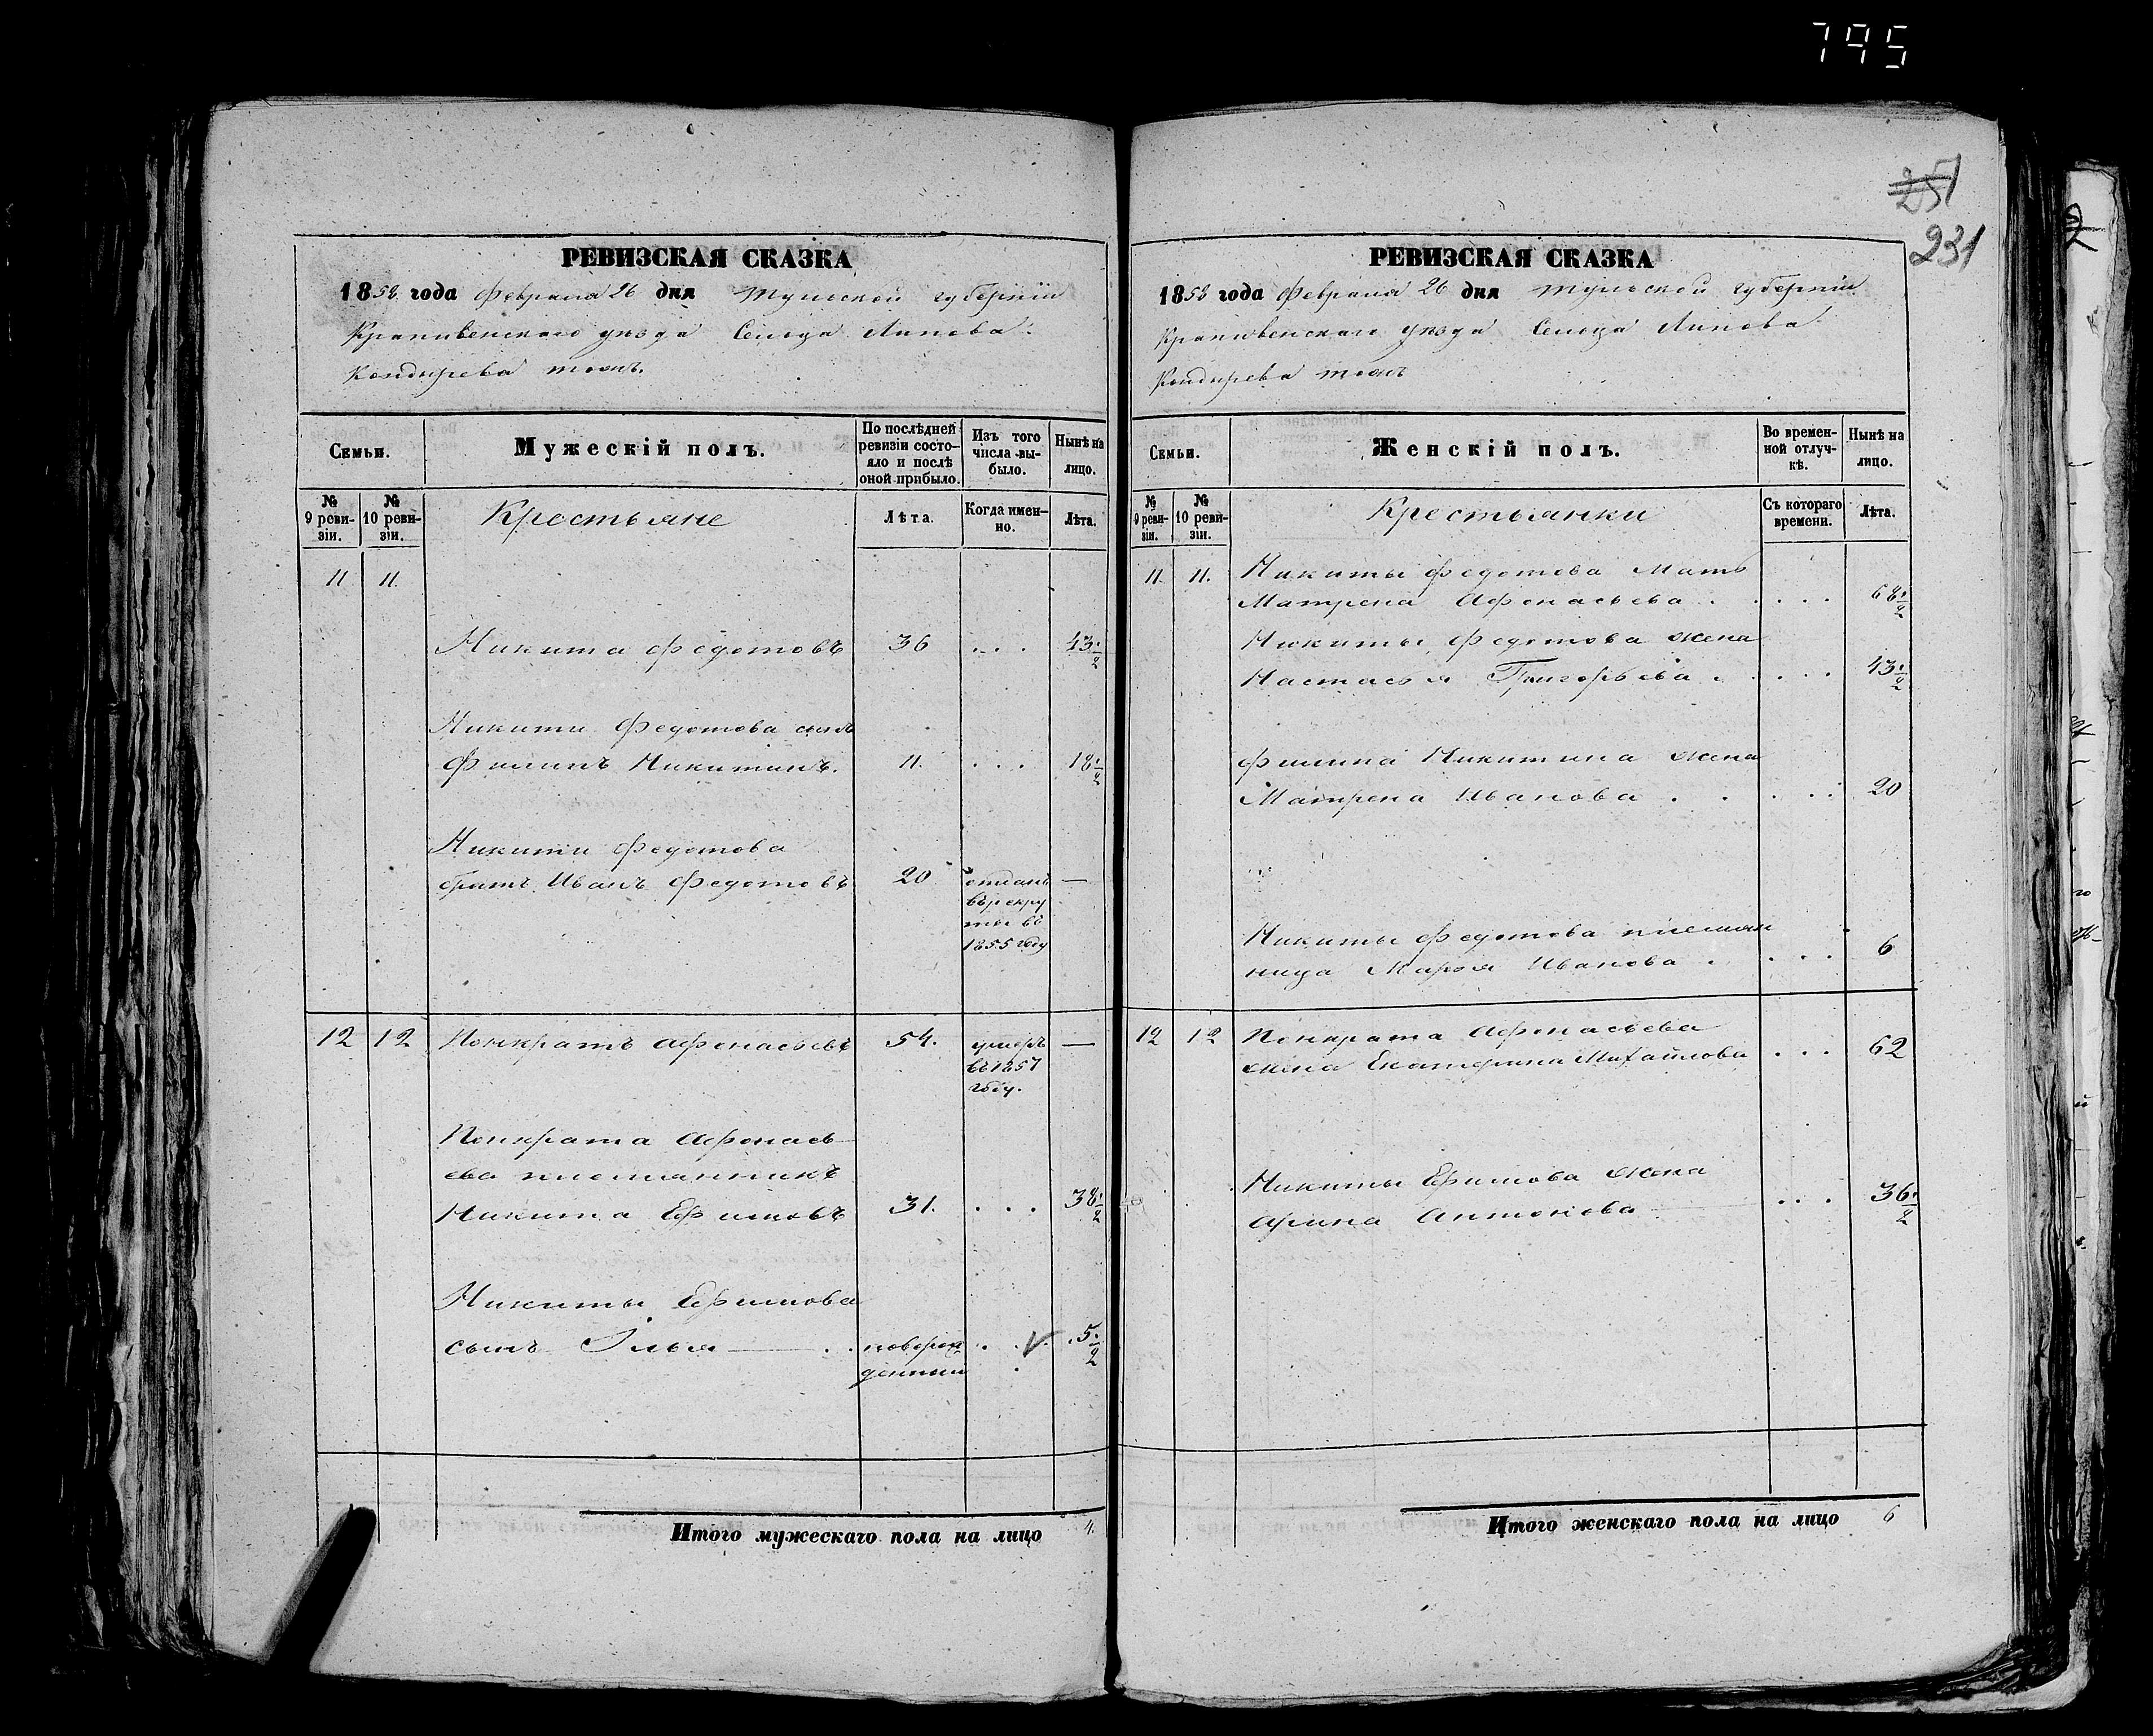 795
251
231
РЕВИЗСКАЯ СКАЗКА
1858 года Февраля 26 дня Тульской губернiи
Крапивенскаго уѣзда Сельца Липова
Кондырева тожъ.
Семьи.
Мужескiй полъ.
По послѣдней ревизiи состо-
яло и послѣ
оной прибыло.
Изъ того
числа вы-
было.
Нынѣ на
лицо.
№
9 реви-
зiи.
№
10 реви-
зiи.
Крестьяне
Лѣта.
Когда имен-
но.
Лѣта.
11 11.
Никита Федотовъ 36 . . . 43 1/2
Никиты Федотова сынъ
Филипъ Никитинъ. 11. . . . 18 1/2
Никиты Федотова
братъ Иванъ Федотовъ 20 отданъ —
въ рекру
ты въ
1855 году
12 12 Понкратъ Афонасьевъ 54. умеръ —
въ 1857
году.
Понкрата Афонась-
ева племянникъ
Никита Ефимовъ 31. . . . 38 1/2
Никиты Ефимова
сынъ Илья — новорож 5 1/2
денный
Итого мужескаго пола на лицо 4.
РЕВИЗСКАЯ СКАЗКА
1858 года Февраля 26 дня Тульской губернiи
Крапивенскаго уѣзда Сельца Липова
Кондырева тожъ
Семьи.
Женскiй полъ.
Во времен-
ной отлуч-
кѣ.
Нынѣ на
лицо.
№
9 реви-
зiи.
№
10 реви-
зiи.
Крестьянки
Съ котораго
времени.
Лѣта.
11. 11. Никиты Федотова Мать
Матрена Афонасьева . . . . . 68 1/2
Никиты Федотова жена
Настасья Григорьева . . . . 43 1/2
Филипа Никитина жена
Матрена Иванова . . . . . 20
Никиты Федотова племян
ница Марья Иванова . . . . 6
12 12 Понкрата Афонасьева
жена Екатерина Михайлова . . . 62
Никиты Ефимова жена
Арина Антонова . . . 36 1/2
Итого женскаго пола на лицо 6